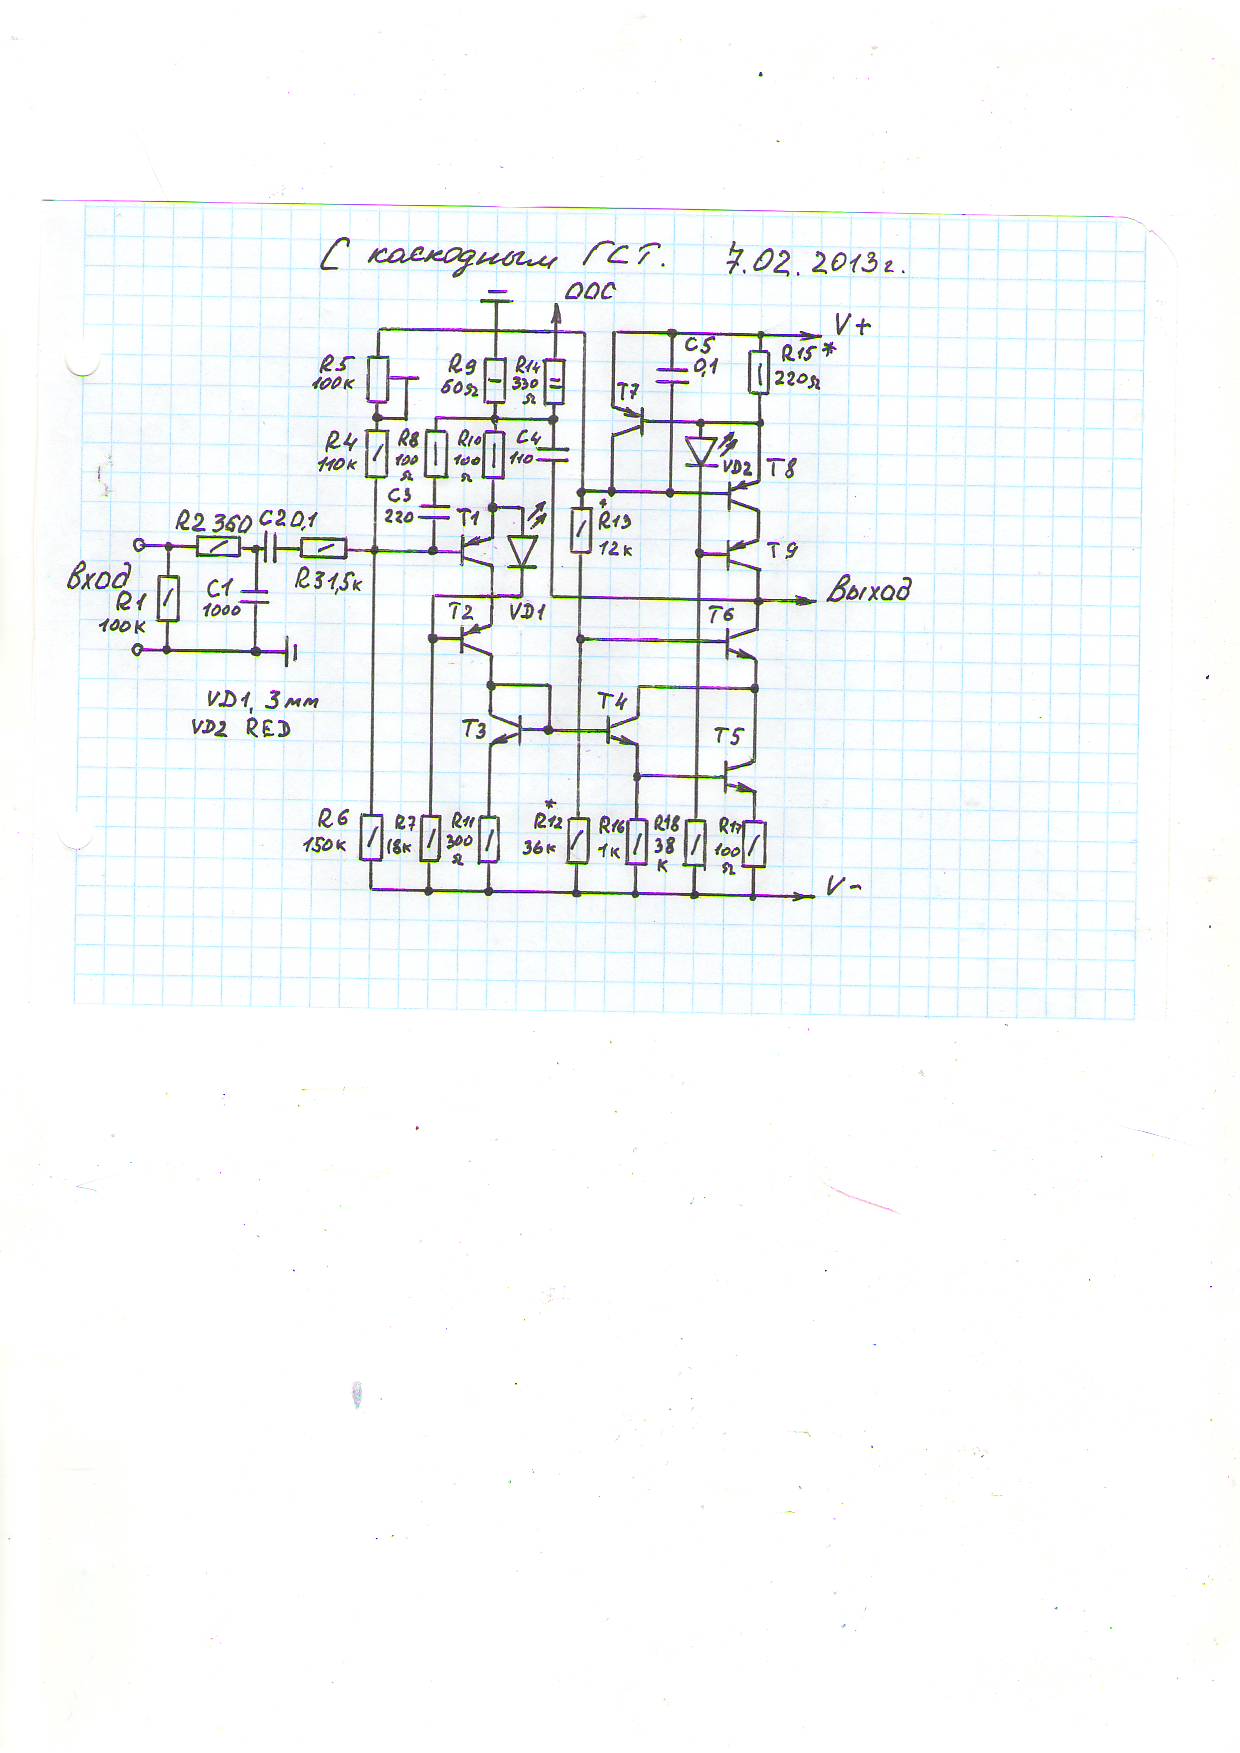 С каскодным ГСТ. 7.02.2013г.
ООС
V+
R5 100к
R9 60Ω
R14 330 Ω
C5 0,1
R15* 220Ω
T7
R4 110к
R8 100 Ω
R10 100 Ω
C4 110
VD2
T8
C3 220
T1
R13 * 12к
T9
R2 360
C2 0,1
R3 1,5к
Вход
R1 100к
C1 1000
T2
VD1
T6
Выход
VD1, 3мм
VD2 RED
T3
T4
T5
R6 150к
R7 18к
R11 300 Ω
* R12 36к
R16 1к
R18 38 к
R17 100 Ω
V-